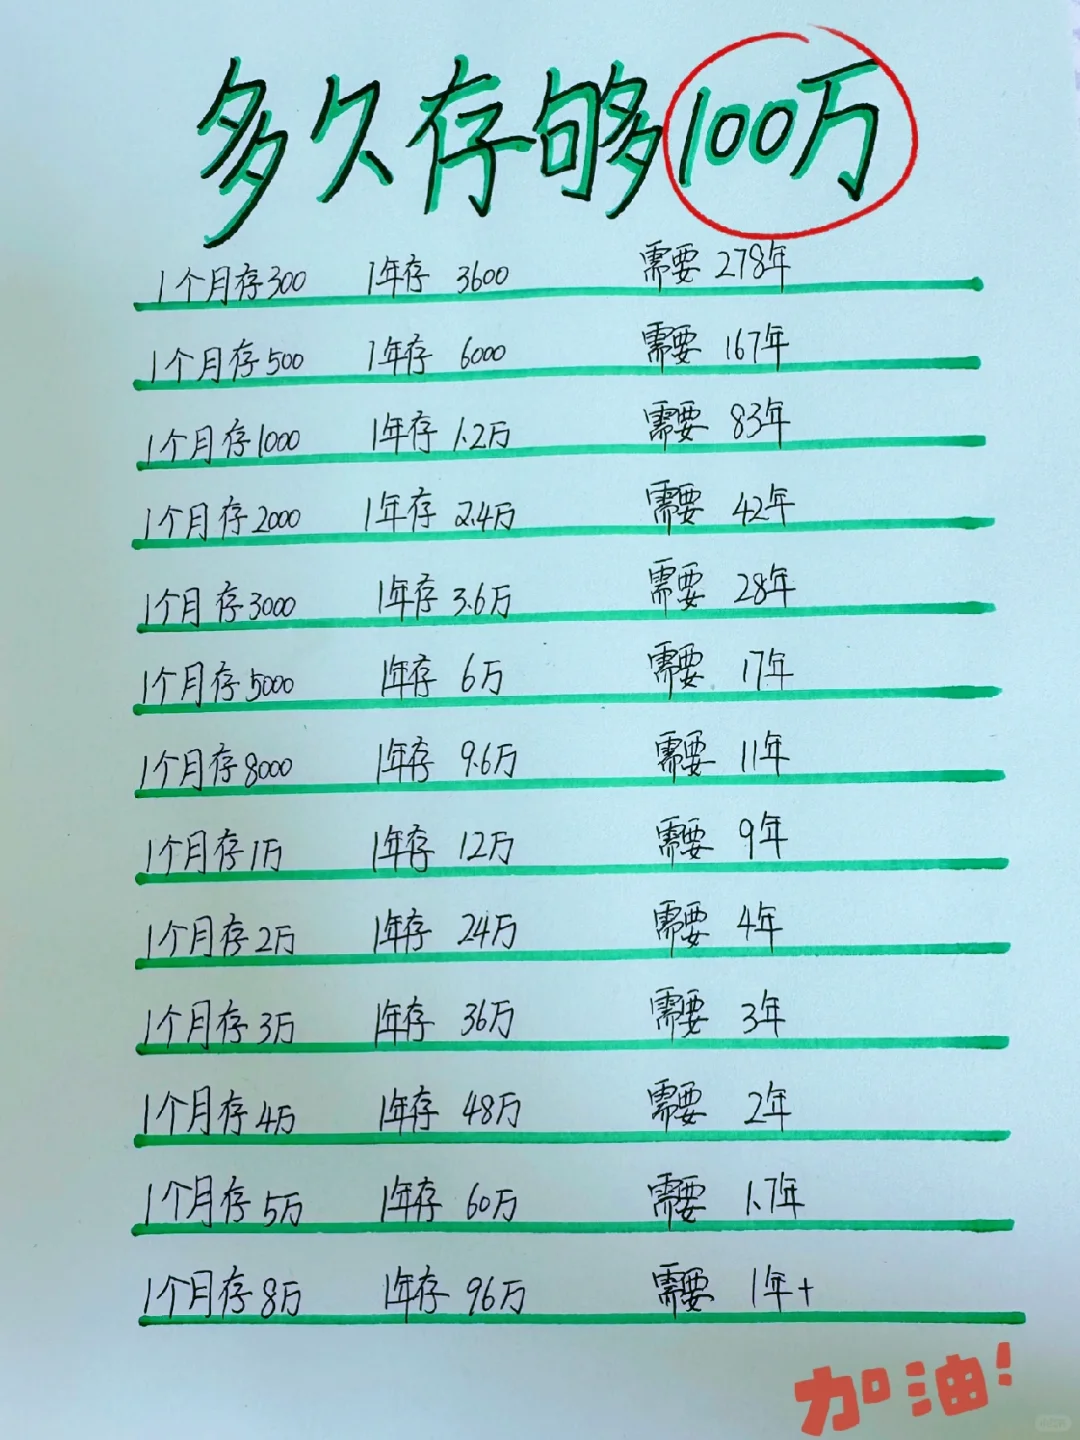 多久存够100万
1个月存300 1年存 3600 需要 278年
1个月存500 1年存 6000 需要 167年
1个月存1000 1年存 1.2万 需要 83年
1个月存2000 1年存 2.4万 需要 42年
1个月存3000 1年存 3.6万 需要 28年
1个月存5000 1年存 6万 需要 17年
1个月存8000 1年存 9.6万 需要 11年
1个月存1万 1年存 12万 需要 9年
1个月存2万 1年存 24万 需要 4年
1个月存3万 1年存 36万 需要 3年
1个月存4万 1年存 48万 需要 2年
1个月存5万 1年存 60万 需要 1.7年
1个月存8万 1年存 96万 需要 1年+
加油!